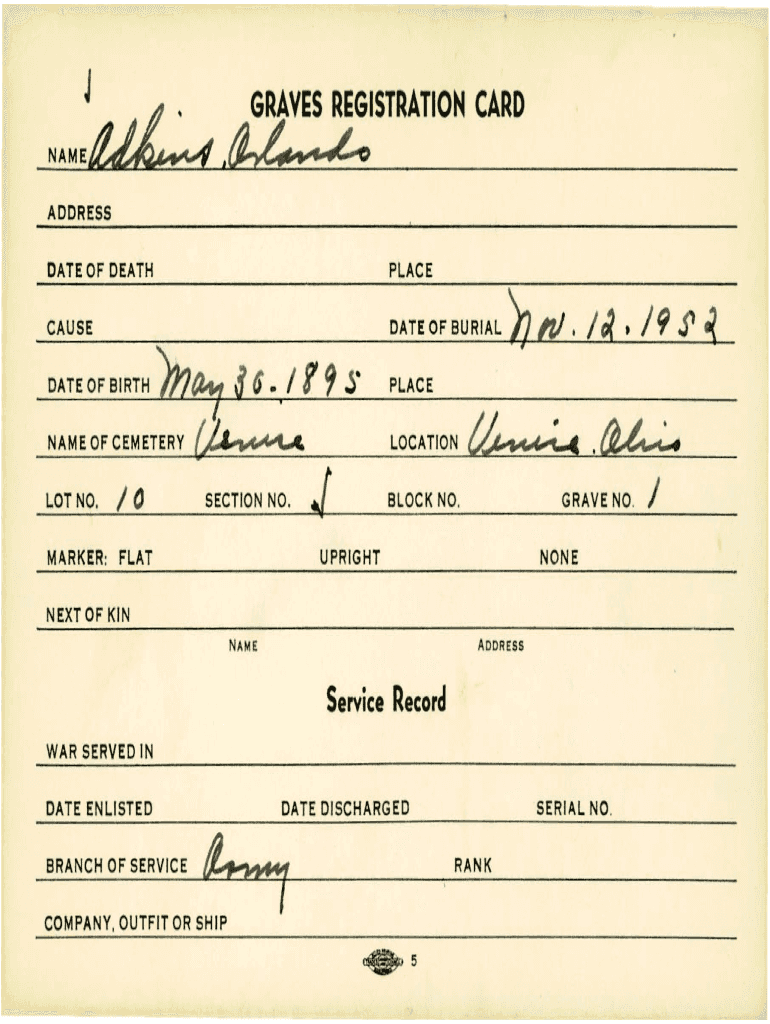 GRAVES REGISTRATION CARD
NAME Adkins, Orlando
ADDRESS
DATE OF DEATH PLACE
CAUSE DATE OF BURIAL Nov. 12. 1952
DATE OF BIRTH May 30. 1895 PLACE
NAME OF CEMETERY Venice LOCATION Venice. Ohio
LOT NO. 10 SECTION NO. BLOCK NO. GRAVE NO. 1
MARKER: FLAT UPRIGHT NONE
NEXT OF KIN
NAME ADDRESS
Service Record
WAR SERVED IN
DATE ENLISTED DATE DISCHARGED SERIAL NO.
BRANCH OF SERVICE Army RANK
COMPANY, OUTFIT OR SHIP
5